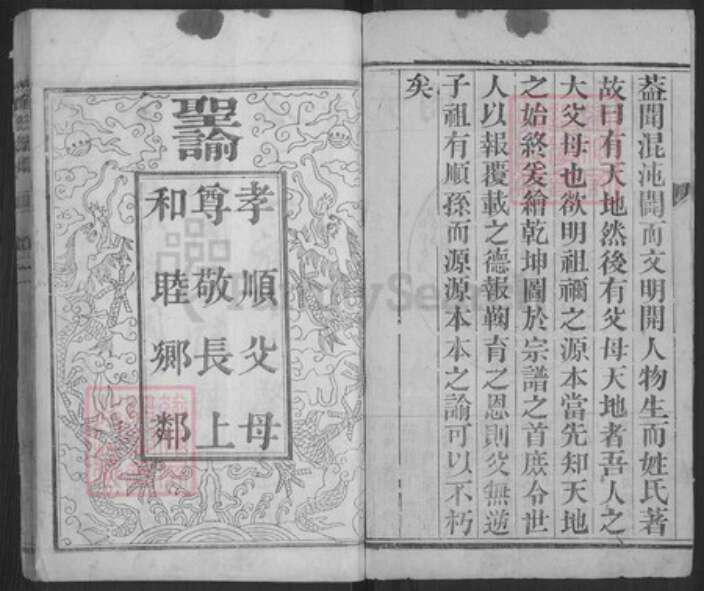 蓋聞混沌闢而文明開人物生而姓氏著
故曰有天地然後有父母天地者吾人之
大父母也欲明祖禰之源本當先知天地
之始終爰繪乾坤圖於宗譜之首庶令世
人以報覆載之德報鞠育之恩則父無逆
子祖有順孫而源源本本之諭可以不朽
矣
聖諭
孝順父母
尊敬長上
和睦鄉鄰